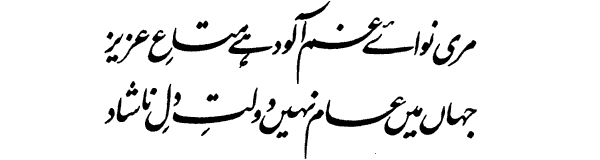 مری نوائے غم آلود ہے متاعِ عزیز
جہاں میں عام نہیں دولتِ دلِ ناشاد